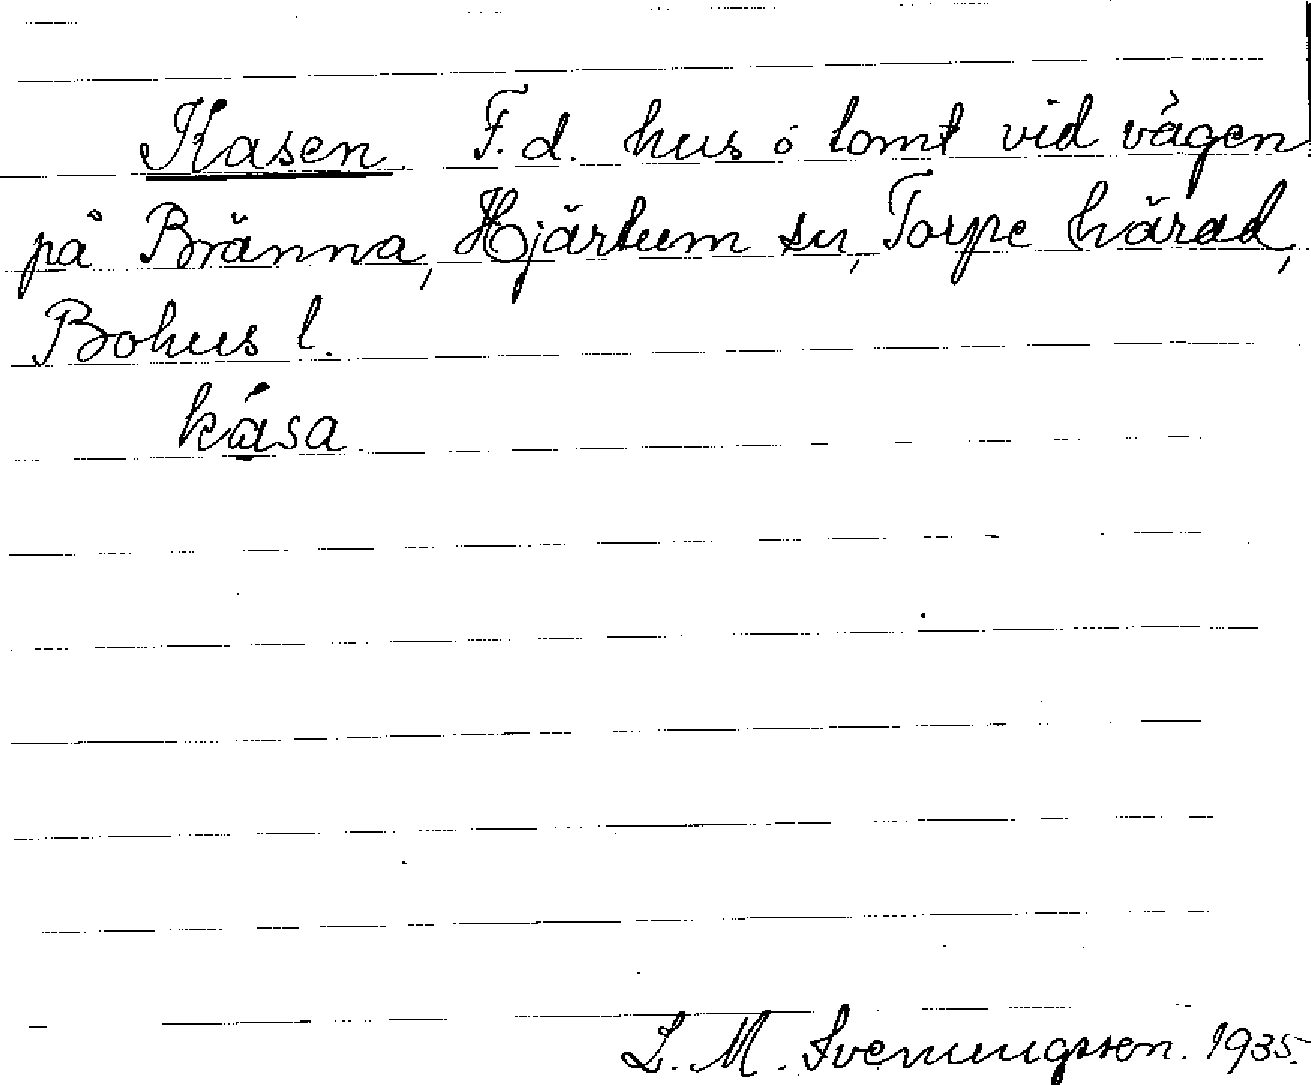 Kasen. F.d. hus o tomt vid vägen
på Bränna, Hjärtum sn, Torpe härad,
Bohus l.
kása
L. M. Svenungsson. 1935.